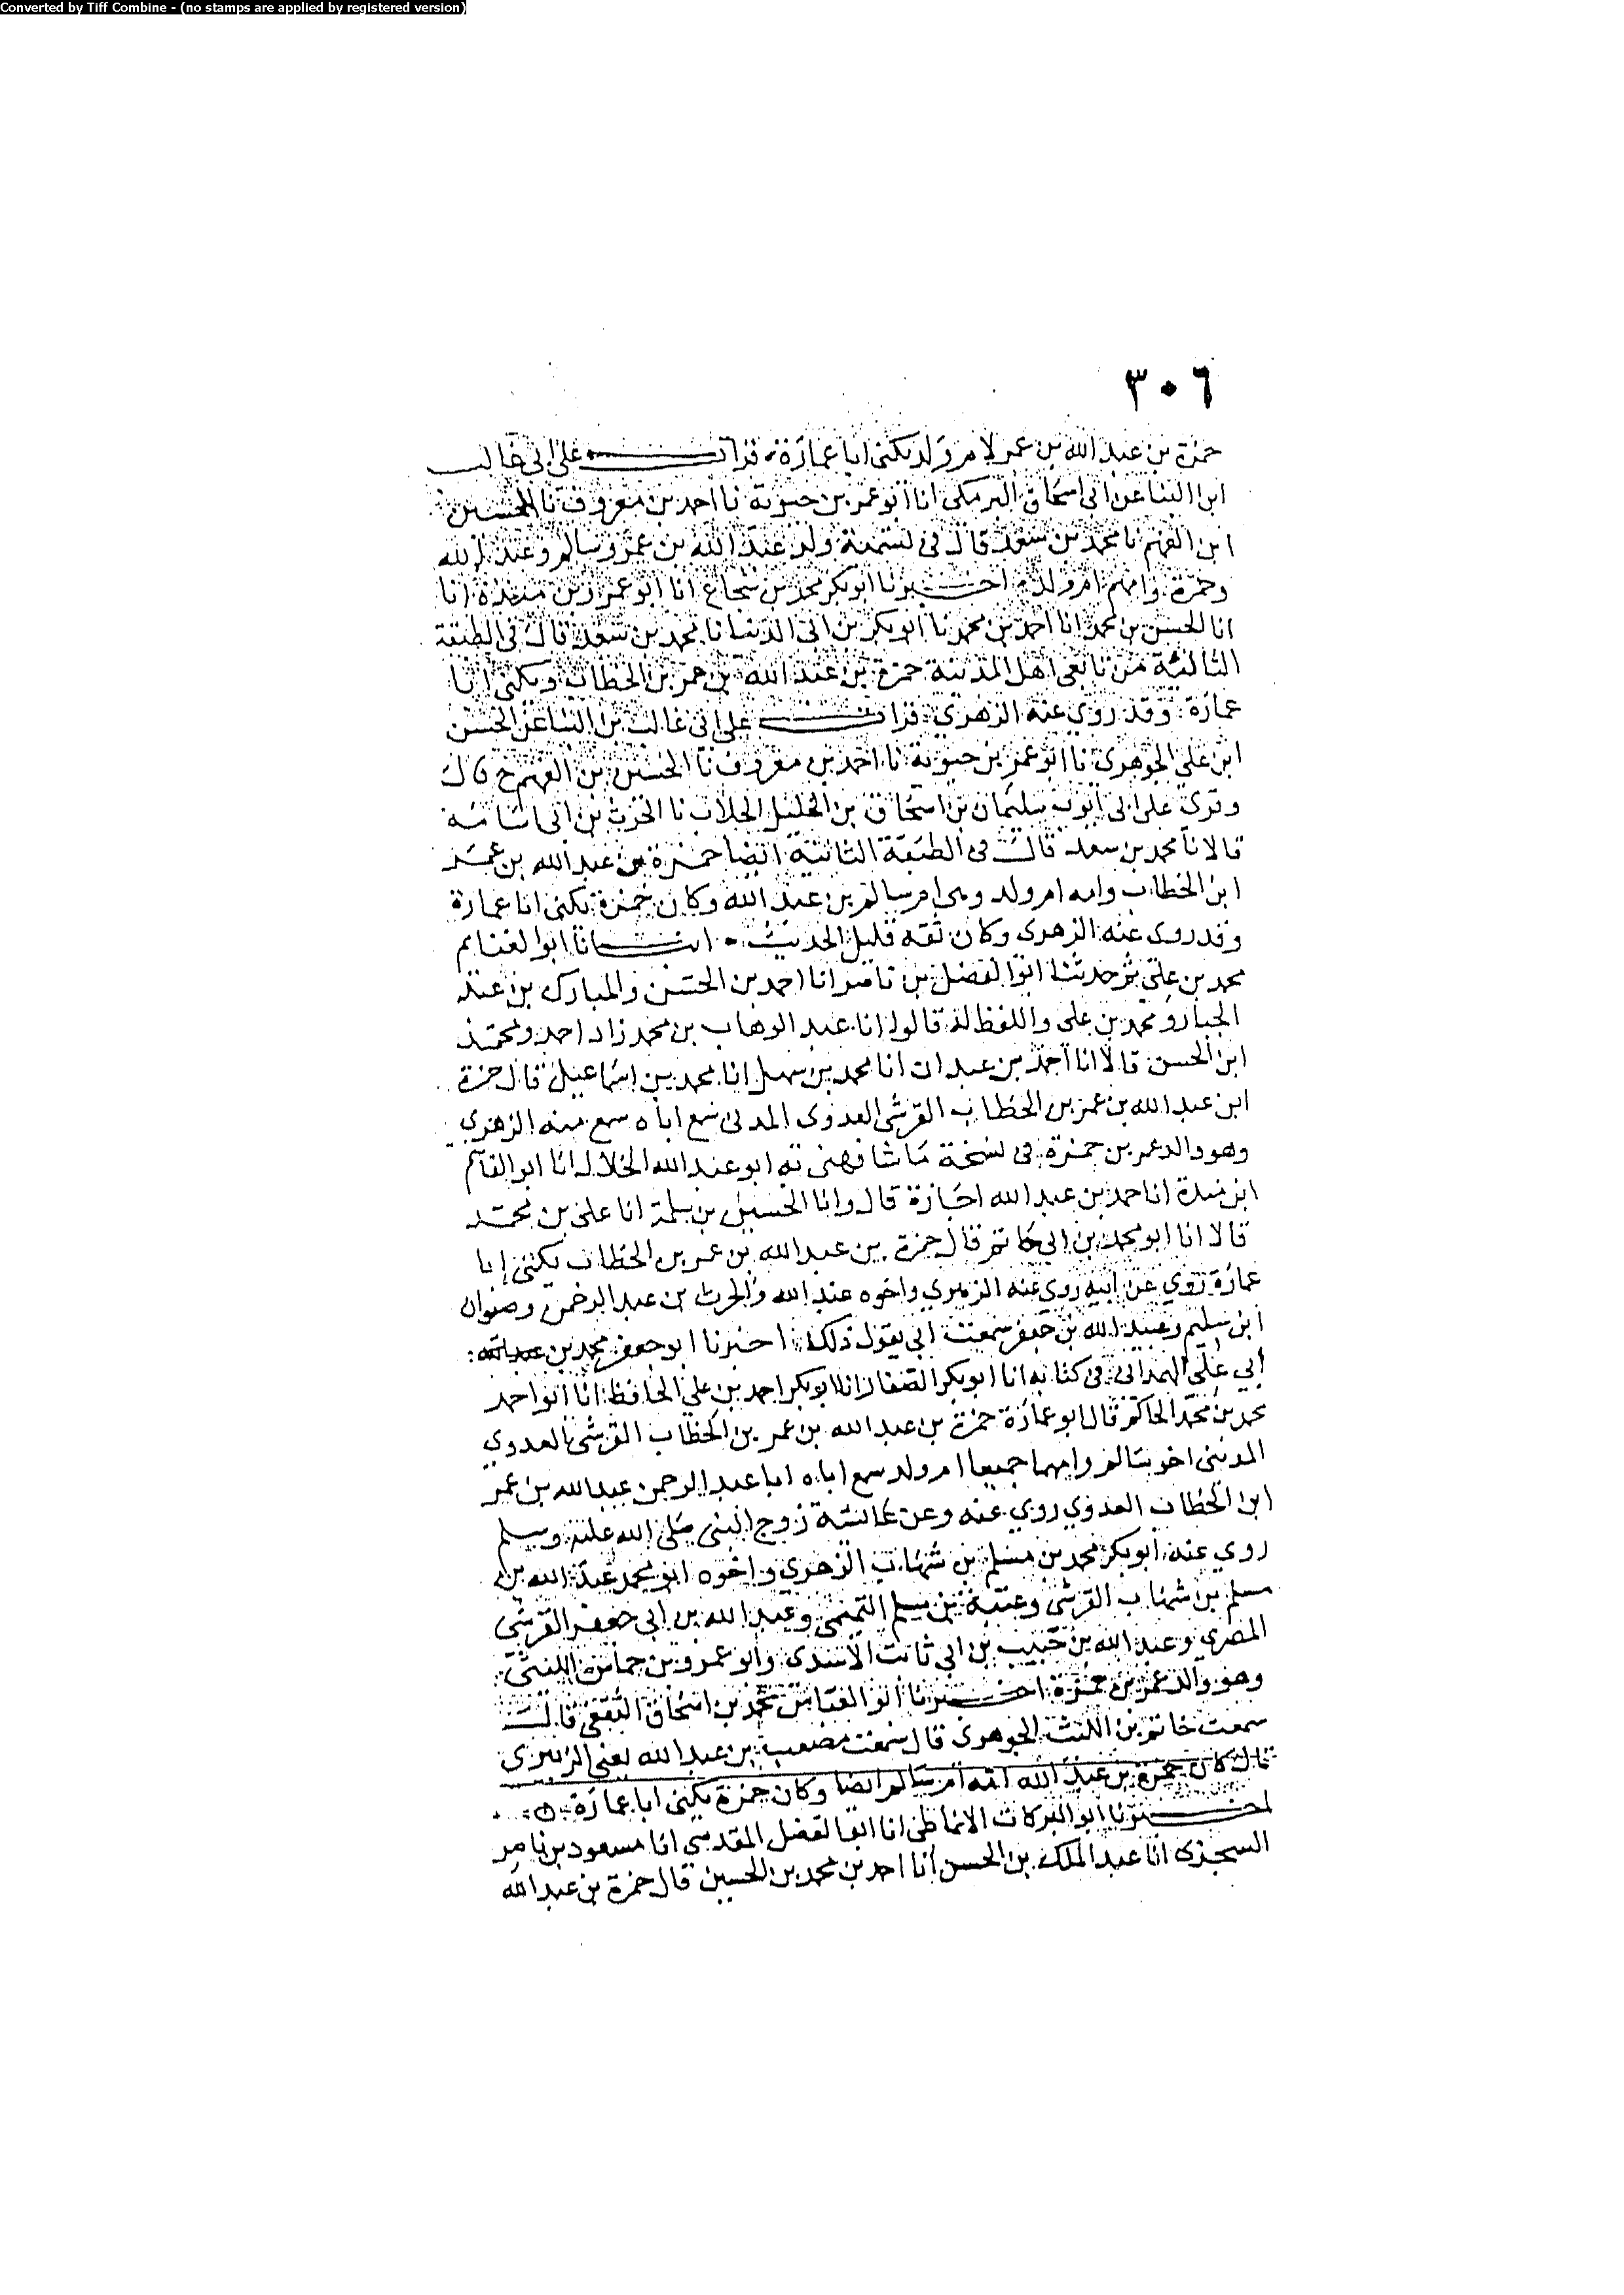 Converted by Tiff Combine - (no stamps are applied by registered version)
٣٠٦
حمزة بن عبد الله بن عمر لام ولد يكنى ابا عمارة، قرات على ابى غالب
ابن البنا عن ابى اسحاق البرمكى انا ابو عمر بن حيوية نا احمد بن معروف نا الحسين
ابن الفهم نا محمد بن سعد قال فى تسمية ولد عبد الله بن عمر وسالم وعبد الله
وحمزة وامهم ام ولد. اخبرنا ابو بكر محمد بن شجاع انا ابو عمرو بن مندة انا
انا الحسن بن محمد انا احمد بن محمد نا ابو بكر بن ابى الدنيا نا محمد بن سعد قال فى الطبقة
الثالثة من تابعى اهل المدينة حمزة بن عبد الله بن عمر بن الخطاب ويكنى ابا
عمارة وقد روي عنه الزهري قرات على ابى غالب بن البنا عن الحسن
ابن علي الجوهرى نا ابو عمر بن حيوية نا احمد بن معروف نا الحسين بن الفهم ح قال
وقرى على ابى ايوب سليمان بن اسحاق بن الخليل الجلاب نا الحرث بن ابى اسامة
قالا نا محمد بن سعد قال فى الطبقة الثانية ايضا حمزة بن عبد الله بن عمر
ابن الخطاب وامه ام ولد وهى ام سالم بن عبد الله وكان حمزة يكنى ابا عمارة
وقد روى عنه الزهرى وكان ثقه قليل الحديث . انبانا ابو الغنايم
محمد بن علي ثم حدثنا ابو الفضل بن ناصر انا احمد بن الحسن والمبارك بن عبد
الجبار ومحمد بن على واللفظ له قالوا انا عبد الوهاب بن محمد زاد احمد ومحمد
ابن الحسن قالا انا احمد بن عبدان انا محمد بن سهل انا محمد بن اسماعيل قال حمزة
ابن عبد الله بن عمر بن الخطاب القرشى العدوى المدنى سمع اباه سمع منه الزهري
وهو والد عمر بن حمزة فى نسخة ما شافهنى به ابو عبد الله الخلال انا ابو القاسم
ابن مندة انا حمد بن عبد الله اجازة قال وانا الحسين بن سلمة انا على بن محمد
قالا انا ابو محمد بن ابي حاتم قال حمزة بن عبد الله بن عمر بن الخطاب يكنى ابا
عمارة روي عن ابيه روى عنه الزهري واخوه عبد الله والحرث بن عبد الرحمن وصفوان
ابن سليم وعبيد الله بن جعفر سمعت ابي يقول ذلك، اخبرنا ابو جعفر محمد بن
أبي على الهمدانى فى كتابه انا ابو بكر الصفار انا ابو بكر احمد بن على الحافظ انا ابو احمد
محمد بن محمد الحاكم قال ابو عمارة حمزة بن عبد الله بن عمر بن الخطاب القرشى العدوي
المدينى اخو سالم وامهما جميعا ام ولد سمع اباه ابا عبد الرحمن عبد الله بن عمر
ابن الخطاب العدوي روي عنه وعن عائشة زوج النبى صلى الله عليه وسلم
روي عنه ابو بكر محمد بن مسلم بن شهاب الزهري واخوه ابو محمد عبد الله بن
مسلم بن شهاب القرشى وعتبة بن مسلم التيمى وعبد الله بن ابي جعفر القرشى
المصري وعبد الله بن حبيب بن ابى ثابت الأسدى وابو عمرو بن حماس الليثى
وهو والد عمر بن حمزة اخبرنا ابو العباس محمد بن اسحاق الثقفى قال
سمعت حاتم بن الليث الجوهرى قال سمعت مصعب بن عبد الله يعني الزبيرى
قال كان حمزة بن عبد الله امه ام سالم ايضا وكان حمزة يكنى ابا عمارة
اخبرنا ابو البركات الانماطى انا ابو الفضل المقدسي انا مسعود بن ناصر
السجزى انا عبد الملك بن الحسن أنا احمد بن محمد بن الحسين قال حمزة بن عبد الله